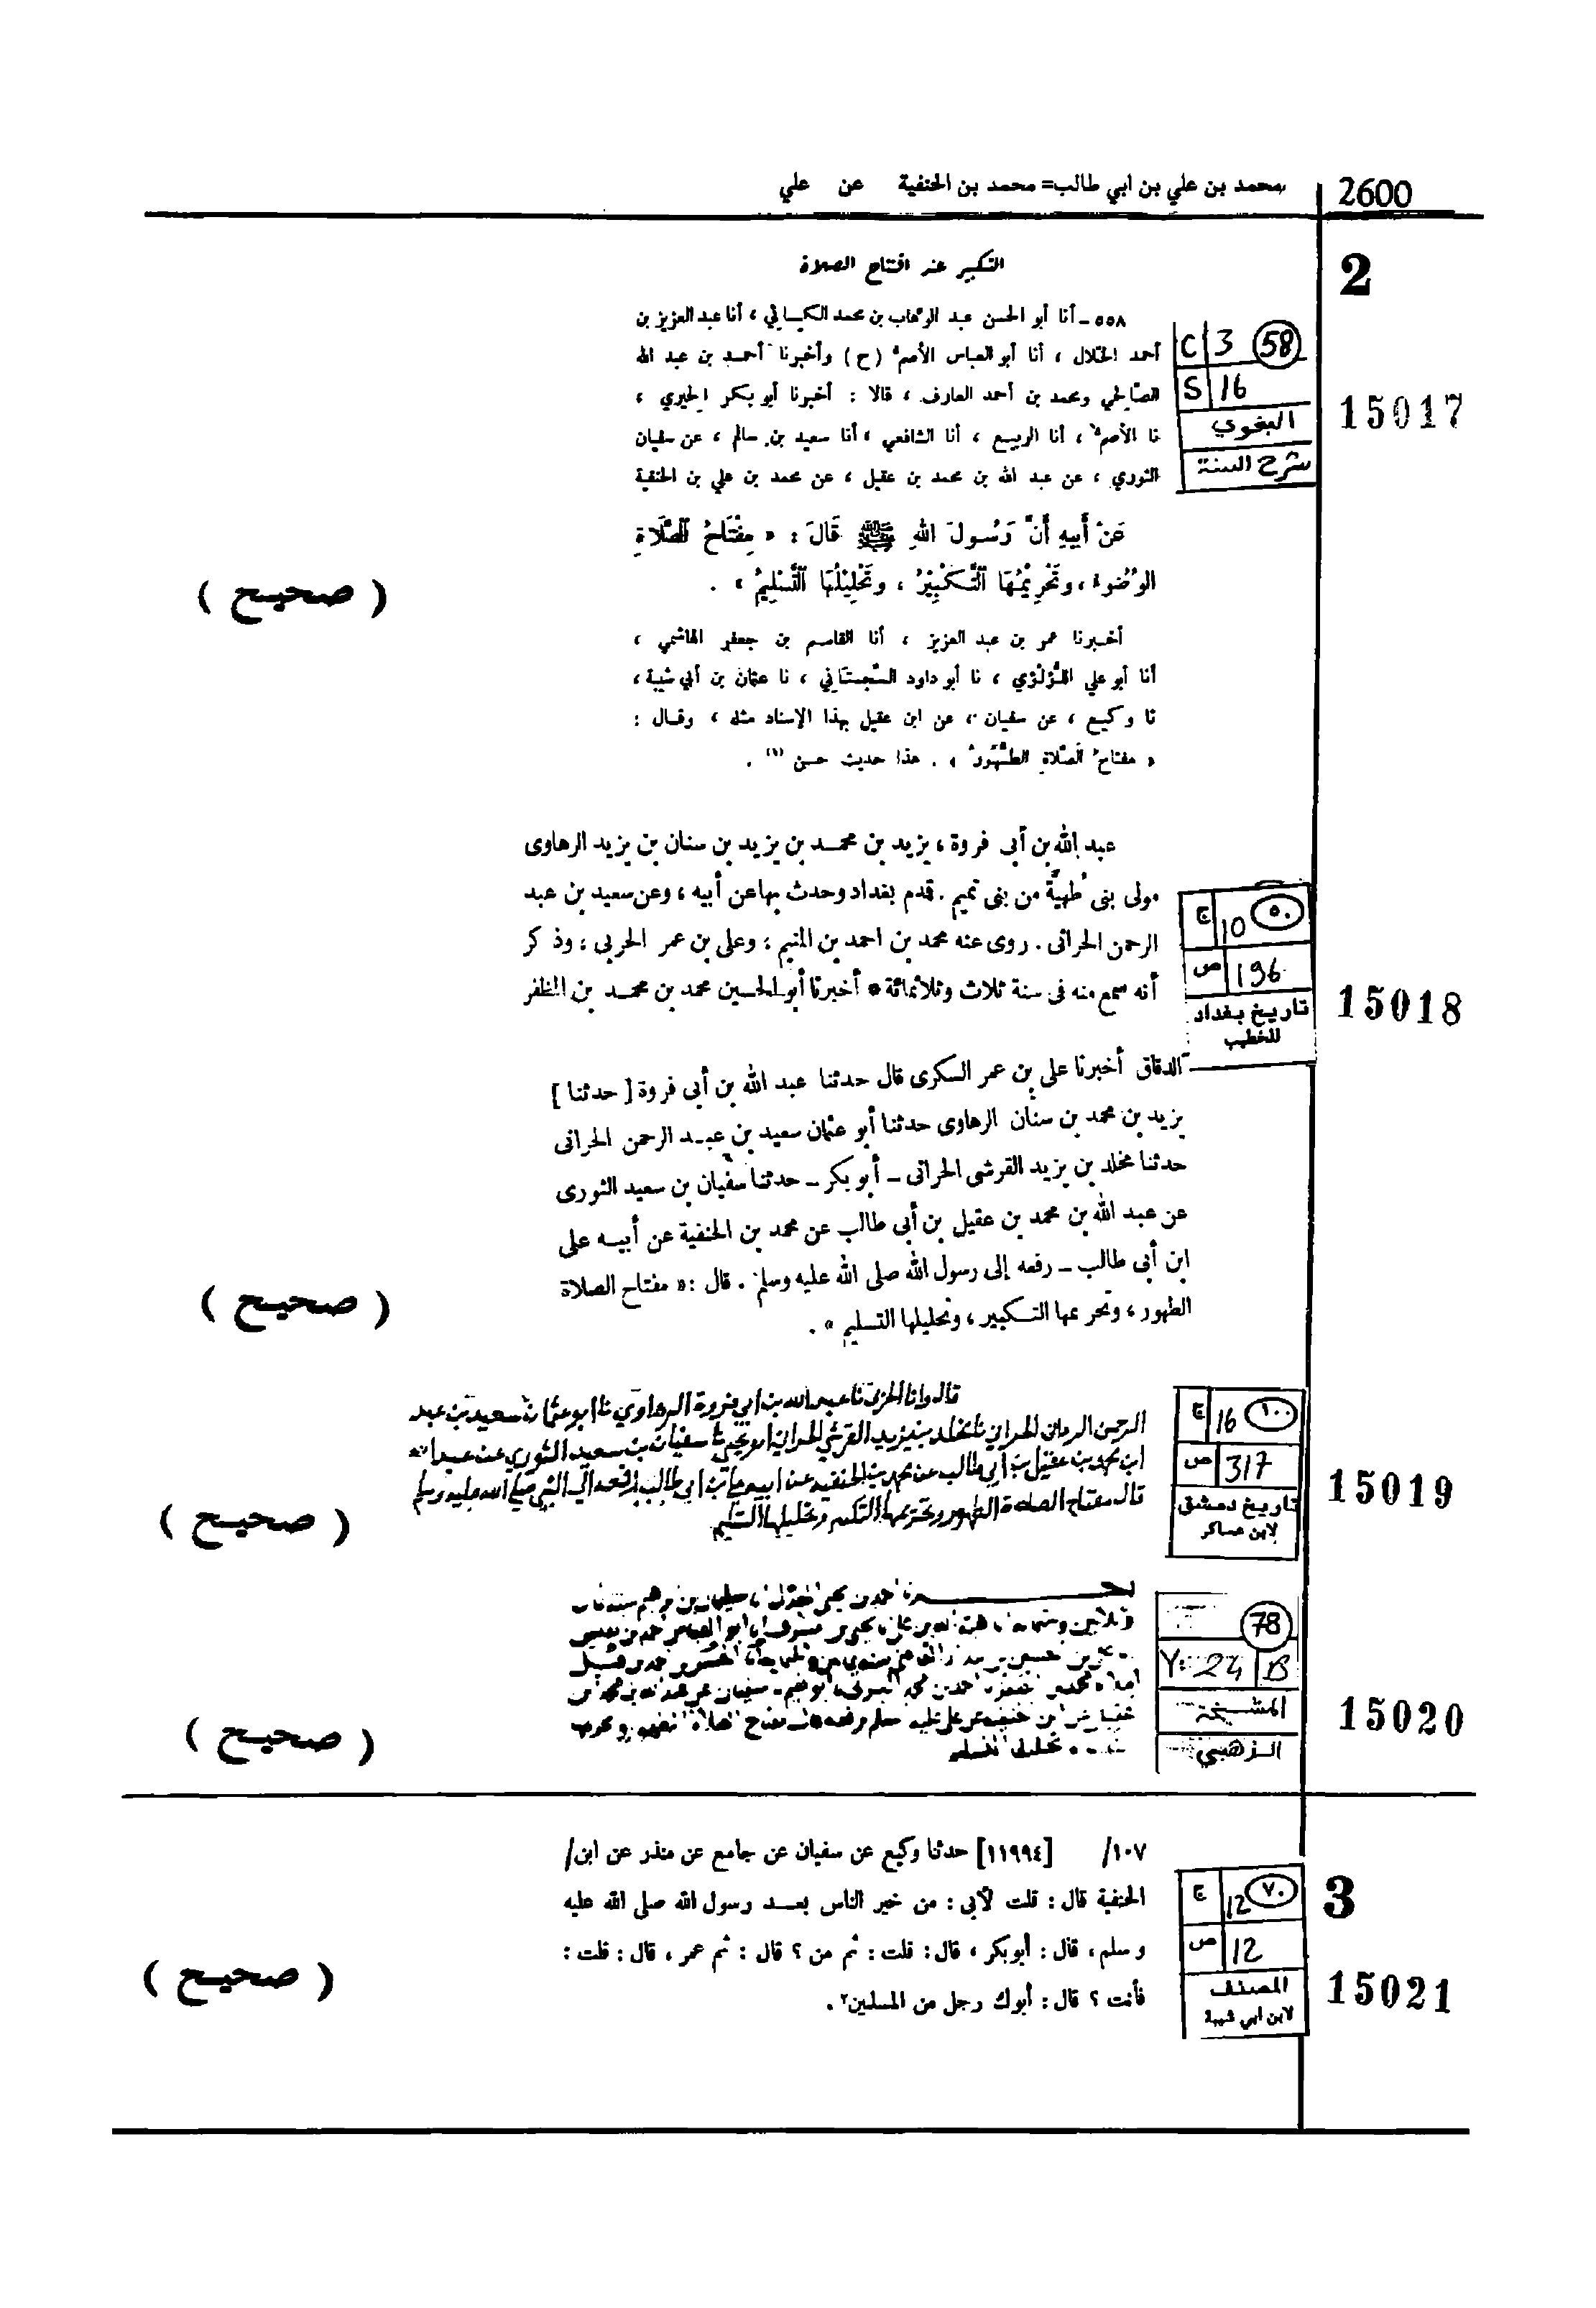 2600
محمد بن علي بن ابي طالب= محمد بن الحنفية عن علي
2
التكبير عند افتتاح الصلاة
٥٥٨ - أنا أبو الحسن عبد الوهاب بن محمد الكسائي ، أنا عبد العزيز بن
أحمد الخلال ، أنا أبو العباس الأصمّ (ح) وأخبرنا أحمد بن عبد الله
الصالحي ومحمد بن أحمد العارف ، قالا : أخبرنا أبو بكر الحيري ،
نا الأصمّ ، أنا الربيع ، أنا الشافعي ، أنا سعيد بن سالم ، عن سفيان
الثوري ، عن عبد الله بن محمد بن عقيل ، عن محمد بن علي بن الحنفية
عَنْ أَبِيهِ أَنَّ رَسُولَ اللهِ ﷺ قَالَ : « مِفْتَاحُ الصَّلَاةِ
الوُضُوءُ ، وَتَحْرِيْمُهَا التَّكْبِيْرُ ، وَتَحْلِيْلُهَا التَّسْلِيمُ » .
أخبرنا عمر بن عبد العزيز ، أنا القاسم بن جعفر الهاشمي ،
أنا أبو علي اللُّؤلُؤي ، نا أبو داود السِّجستاني ، نا عثمان بن أبي شيبة ،
نا وكيع ، عن سفيان ، عن ابن عقيل بهذا الإسناد مثله ، وقال :
« مفتاحُ الصَّلاةِ الطُّهُورُ » . هذا حديث حسن (١) .
C 3 58
S 16
البغوي
شرح السنة
15017
( صحيح )
عبد الله بن أبى فروة ، يزيد بن محمد بن يزيد بن سنان بن يزيد الرهاوى
مولى بنى طُهيَّة من بنى تميم . قدم بغداد وحدث بها عن أبيه ، وعن سعيد بن عبد
الرحمن الحرانى . روى عنه محمد بن احمد بن المتيم ؛ وعلى بن عمر الحربى ؛ وذكر
أنه سمع منه فى سنة ثلاث وثلاثمائة * أخبرنا أبو الحسين محمد بن محمد بن المظفر
الدقاق أخبرنا على بن عمر السكرى قال حدثنا عبد الله بن أبى فروة [ حدثنا ]
يزيد بن محمد بن سنان الرهاوى حدثنا أبو عثمان سعيد بن عبد الرحمن الحرانى
حدثنا مخلد بن يزيد القرشى الحرانى - أبو بكر - حدثنا سفيان بن سعيد الثورى
عن عبد الله بن محمد بن عقيل بن أبى طالب عن محمد بن الحنفية عن أبيه على
ابن أبى طالب - رفعه إلى رسول الله صلى الله عليه وسلم . قال : « مفتاح الصلاة
الطهور ، وتحريمها التكبير ، وتحليلها التسليم » .
ج 10 ٥٠
ص 196
تاريخ بغداد
للخطيب
15018
( صحيح )
قال وانا الحربي نا عبد الله بن ابي فروة الرهاوي نا ابو عثمان سعيد بن عبد
الرحمن الحراني نا مخلد بن يزيد القرشي الحراني نا سفيان بن سعيد الثوري عن عبد الله
ابن محمد بن عقيل بن أبي طالب عن محمد بن الحنفية عن ابيه علي بن ابي طالب رفعه الي النبي صلي الله عليه وسلم
قال مفتاح الصلاة الطهور وتحريمها التكبير وتحليلها التسليم
ج 16 ١٠٠
ص 317
تاريخ دمشق
لابن عساكر
15019
( صحيح )
78
24 B
المشيخة
الذهبي
15020
( صحيح )
١٠٧/ [١١٩٩٤] حدثنا وكيع عن سفيان عن جامع عن منذر عن ابن/
الحنفية قال : قلت لأبى : من خير الناس بعد رسول الله صلى الله عليه
وسلم ، قال : أبو بكر ، قال : قلت : ثم من ؟ قال : ثم عمر ، قال : قلت :
فأنت ؟ قال : أبوك رجل من المسلمين٢ .
ج 12 ٧٠
ص 12
المصنف
لابن ابي شيبة
3
15021
( صحيح )